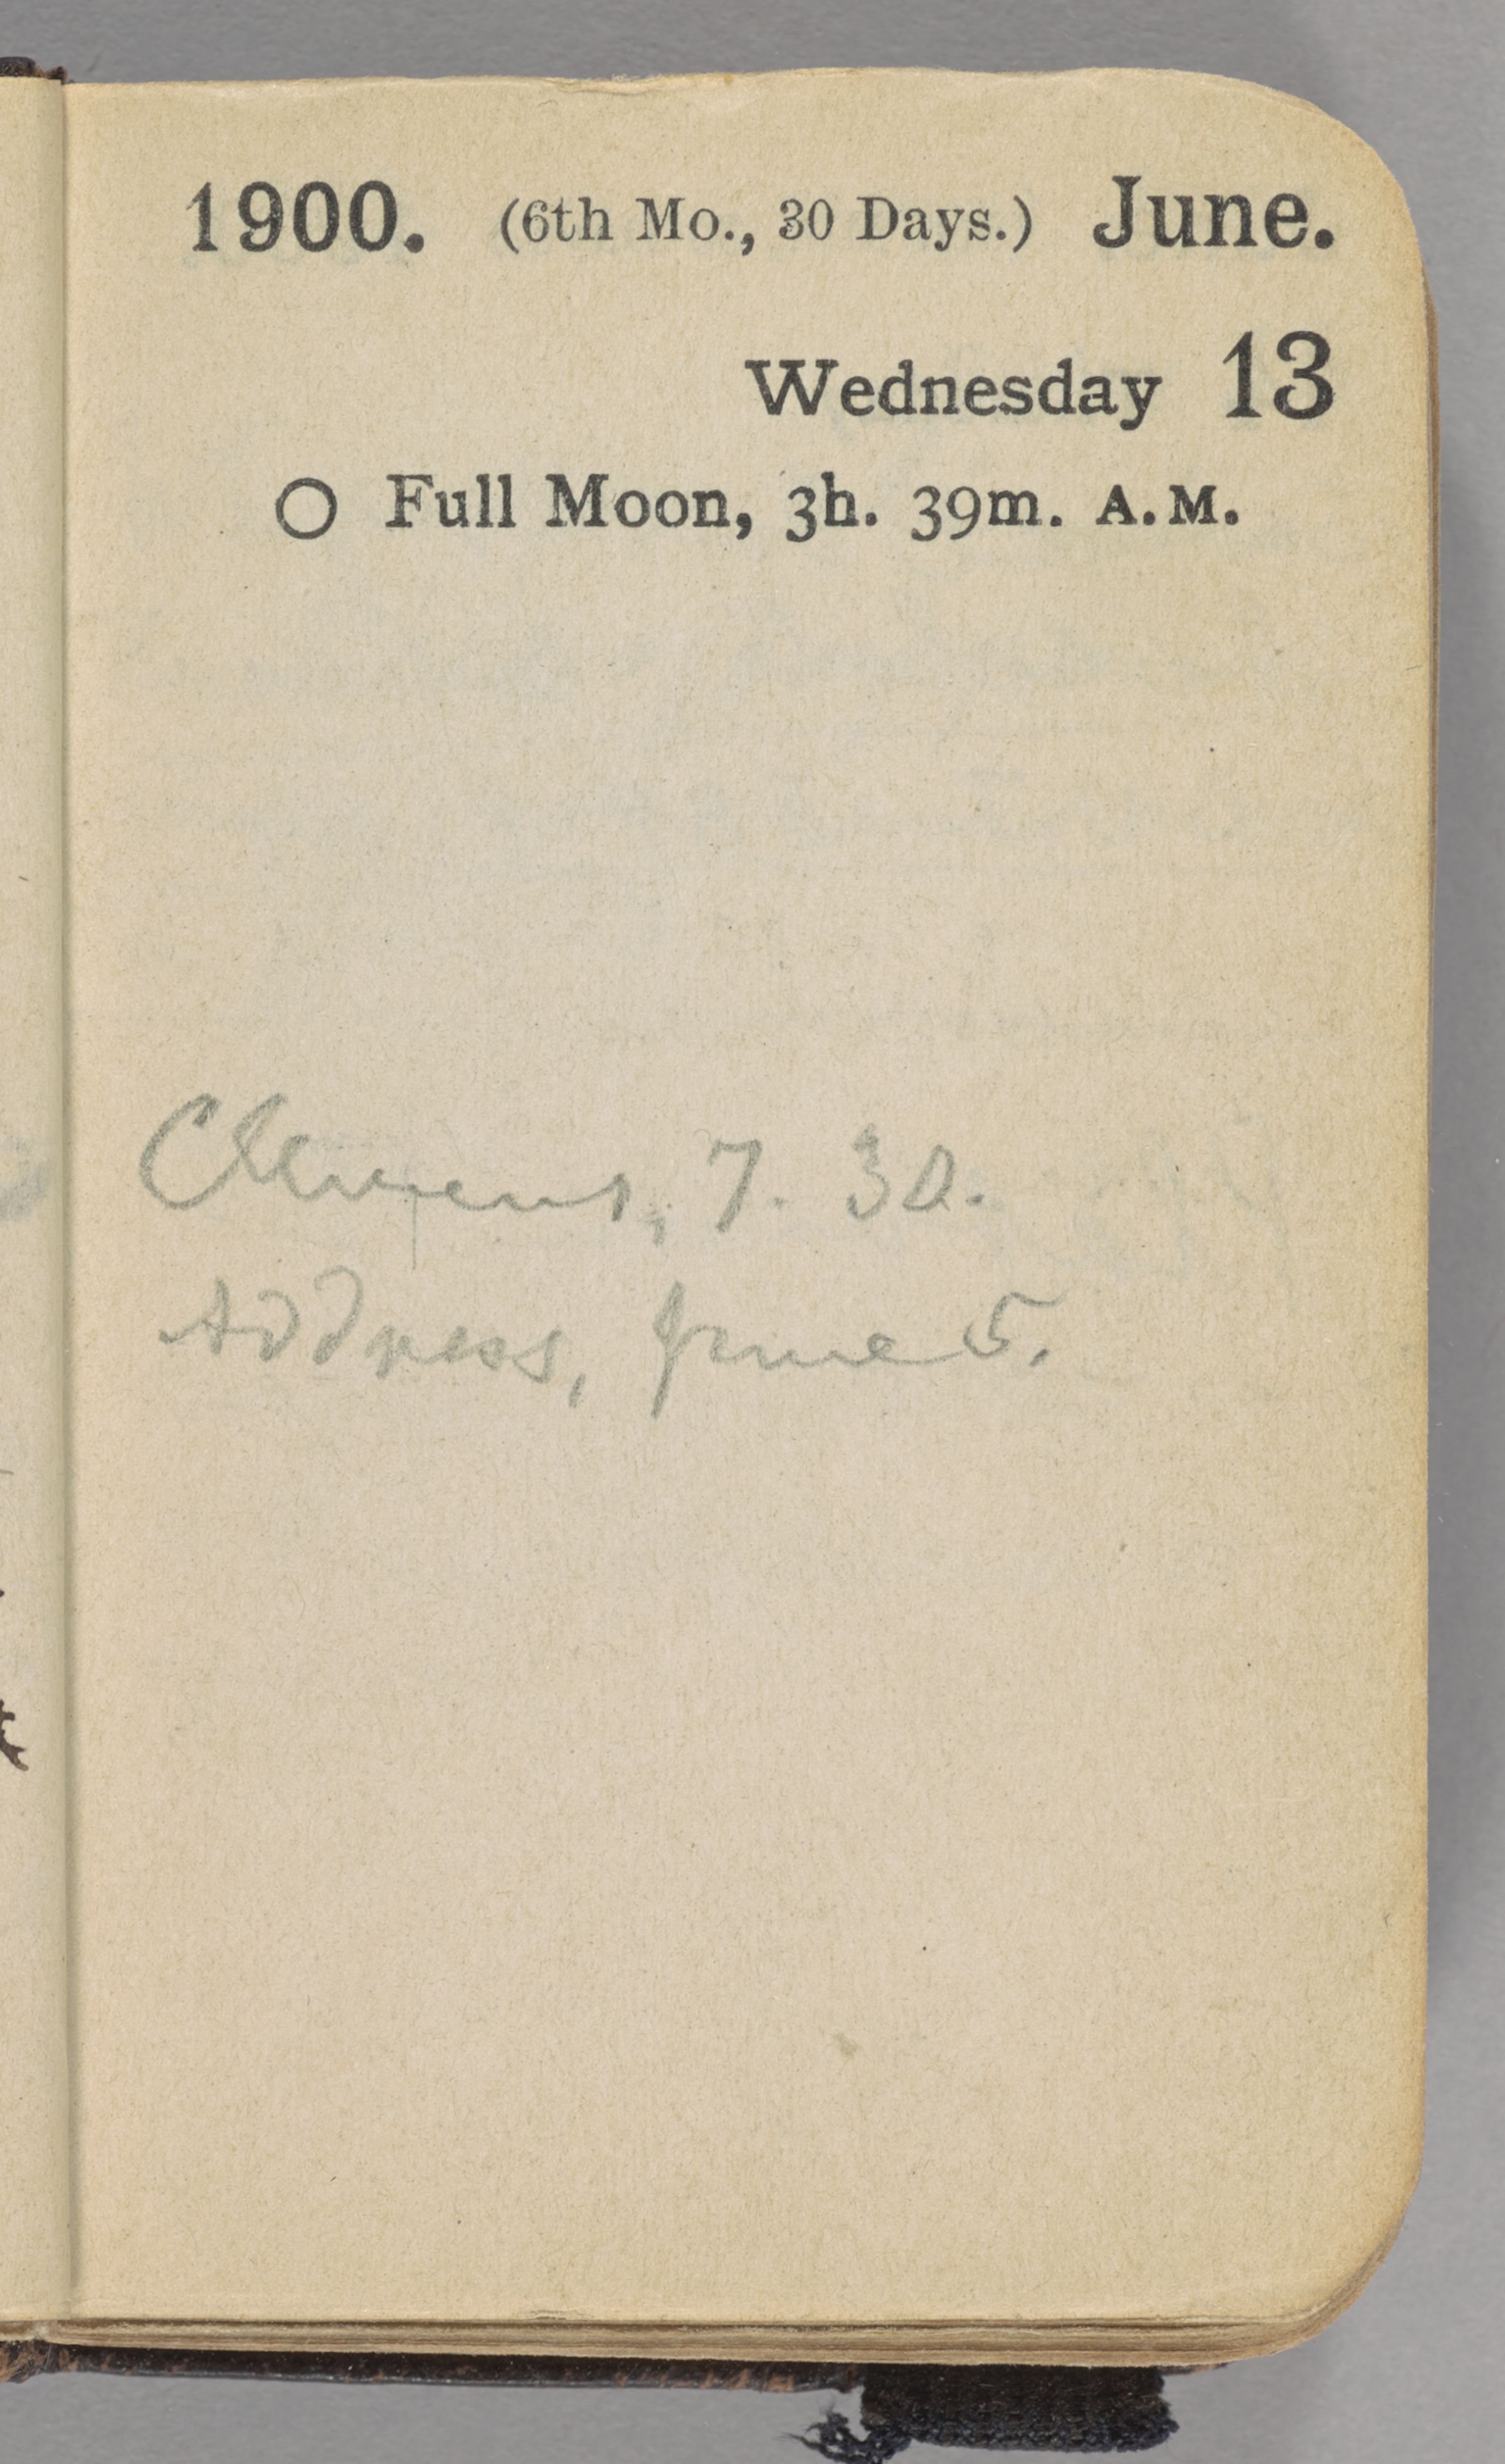 1900. (6th Mo., 30 Days.) June.
Wednesday 13
Full Moon, 3h. 39m. A.M.
Clemens, 7. 30.
Address, June 5.